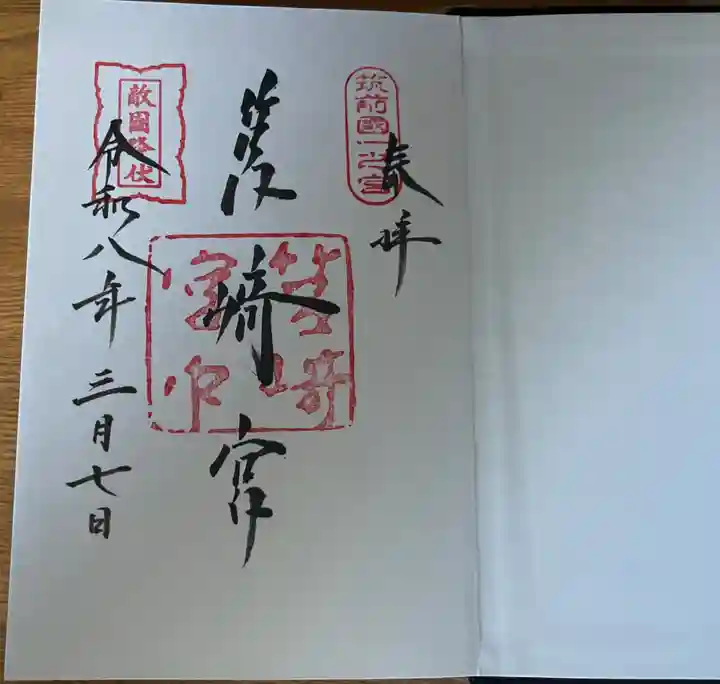 奉拝
筑前國一之宮
筥﨑宮
筥崎宮印
敵國降伏
令和八年三月七日